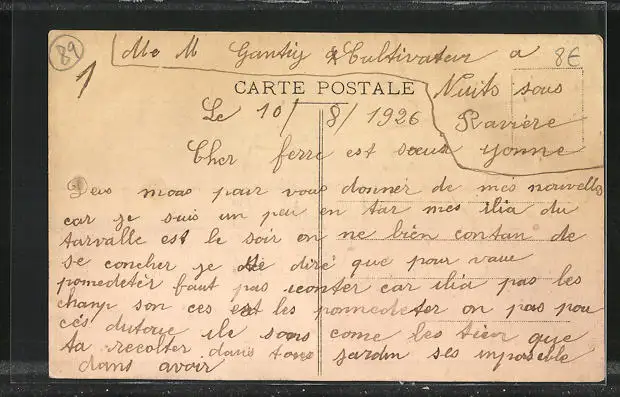 89
Mr M Gantiy Cultivateur a
8€
1
CARTE POSTALE
Nuits sous
Le 10/ 8/ 1926
Ravière
Cher ferre est sœur
Yonne
Deus moas pour vous donner de mes nouvelles
car je suis un peu en tar mes ilia du
tarvalle est le soir on ne bien contan de
se concher je diré que pour vaue
pomedeter faut pas conter car ilia pas les
champ son ces est les pomedeter on pas pou
cés dutoue ile sons come les tien que
ta recolter dans tous jardin ses inposeble
dans avoir